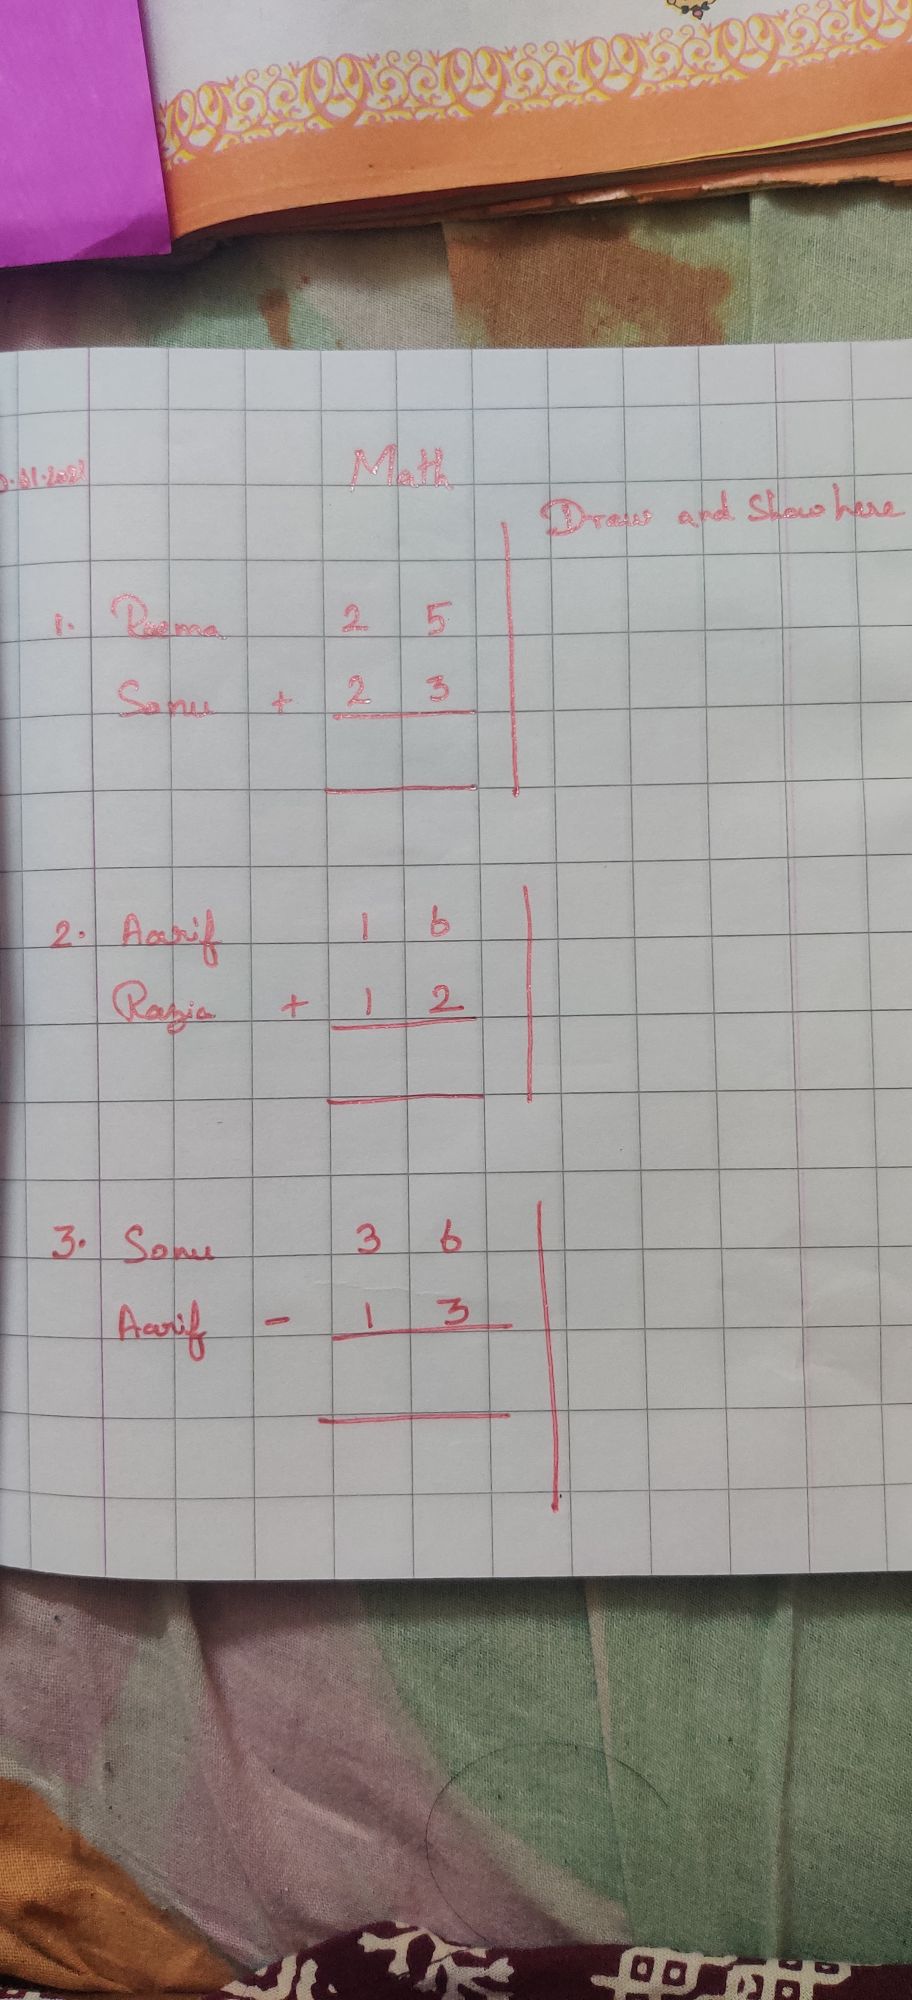 Math
Draw and Show here
1. Reema 2 5
Sonu + 2 3
2. Aarif 1 6
Razia + 1 2
3. Sonu 3 6
Aarif - 1 3